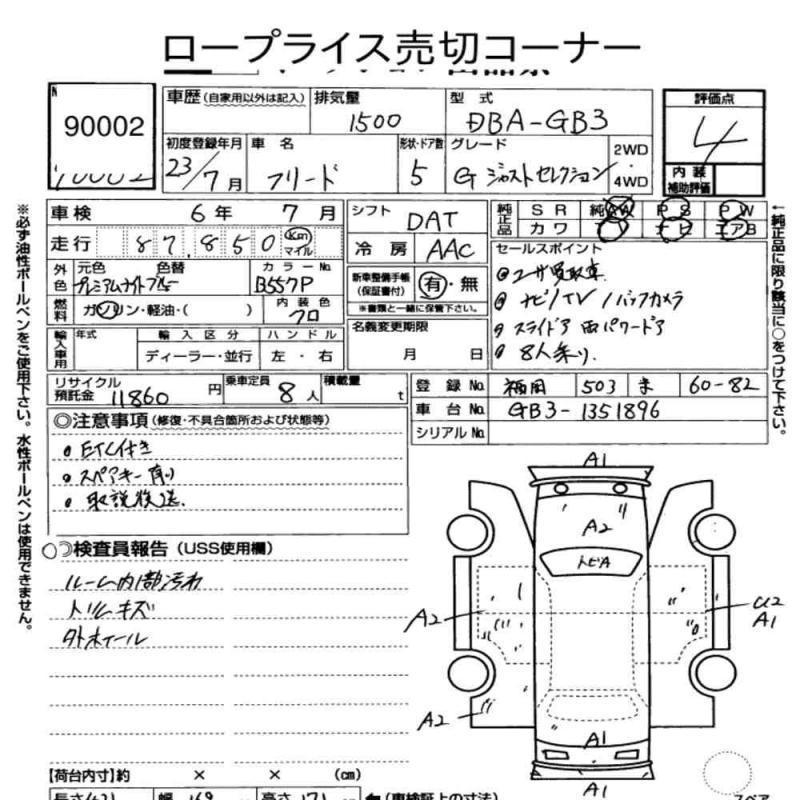 ロープライス売切コーナー
90002
車歴(自家用以外は記入) 排気量 1500 型式 DBA-GB3
評価点 4
初度登録年月 23/7月 車名 フリード 形状・ドア数 5 グレード G ジャストセレクション 2WD・4WD
内装補助評価
車検 6年 7月 シフト DAT
純正品 SR 純AW PS PW
カワ ナビ エアB
走行 87,850 Km マイル 冷房 AAC
セールスポイント
外色 元色 プレミアムナイトブルー 色替 カラーNo. B557P
新車整備手帳(保証書付) 有・無
※書類と一緒に保管下さい。
燃料 ガソリン・軽油・( ) 内装色 クロ
ユーザー買取車
ナビ/TV / バックカメラ
スライドア 両パワードア
8人乗り.
輸入車用 年式 輸入区分 ディーラー・並行 ハンドル 左・右
名義変更期限 月 日
リサイクル預託金 11860円 乗車定員 8人 積載量 t
登録No. 福岡 503 ま 60-82
車台No. GB3-1351896
シリアルNo.
◎注意事項(修復・不具合箇所および状態等)
・ETC付き
・スペアキー有り
・取説後送.
◎検査員報告(USS使用欄)
ルーム内部汚れ
トリムキズ
外ホイール
A1
A2
トビA
A2
U2
A1
A2
A1
A1
【荷台内寸】約 × × (cm)
長さ421 幅169 高さ171 ←(車検証上の寸法)
スペア
※必ず油性ボールペンをご使用下さい。水性ボールペンは使用できません。
←純正品に限り該当に○をつけて下さい。